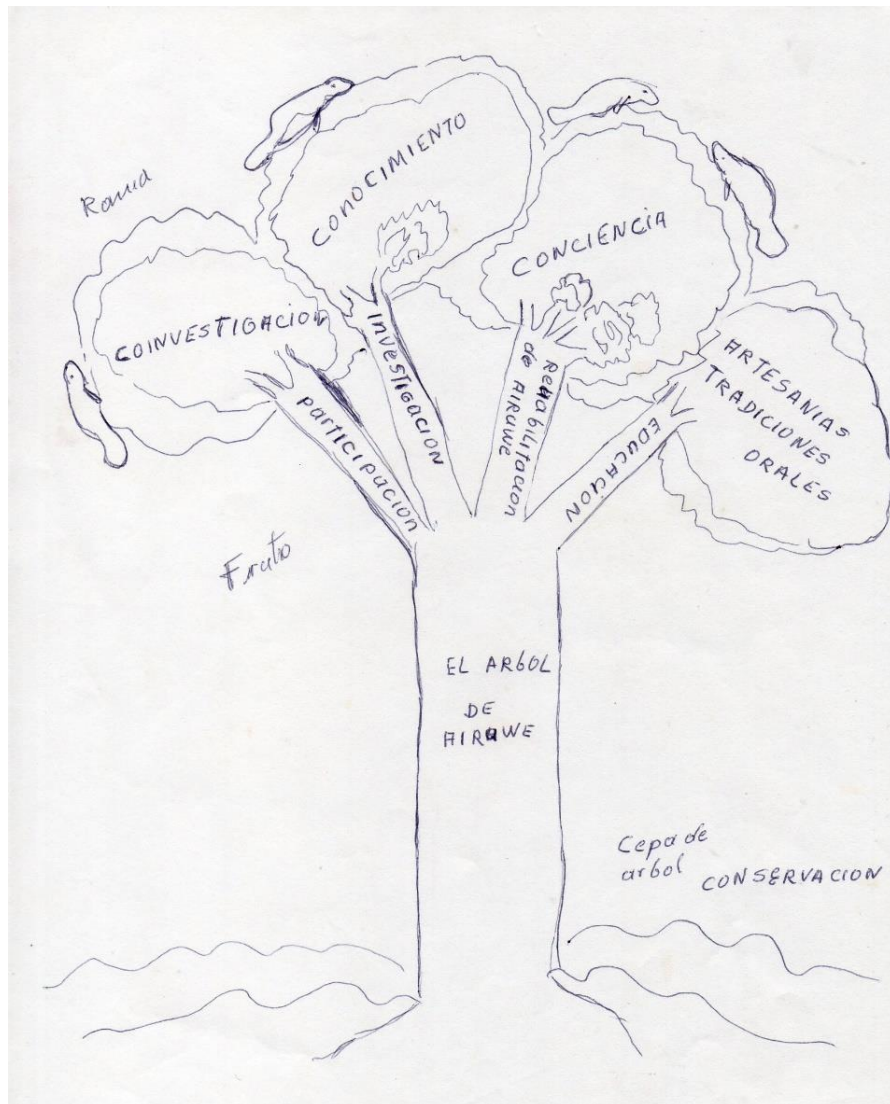 Rama
CONOCIMIENTO
CONCIENCIA
COINVESTIGACION
ARTESANIAS
TRADICIONES
ORALES
participacion
Investigacion
Rehabilitacion
de AIRUWE
EDUCACION
Fruto
EL ARbOL
DE
AIRUWE
Cepa de
arbol
CONSERVACION